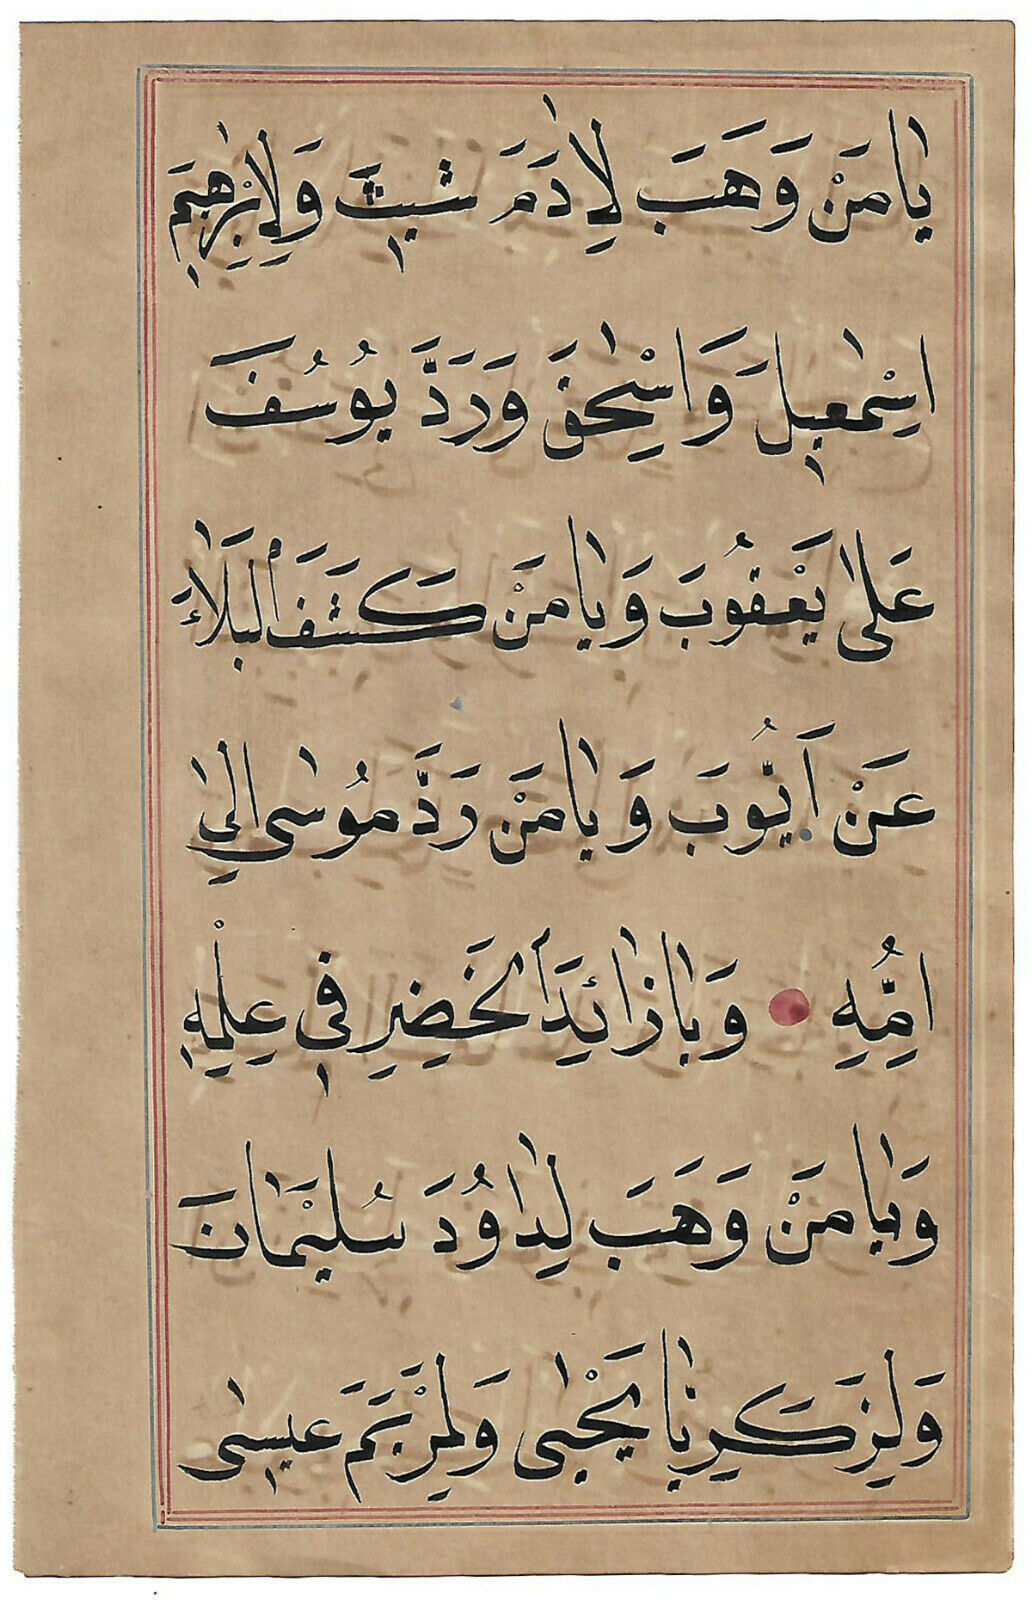 يَا مَنْ وَهَبَ لِاٰدَمَ شيثَ وَلِاِبْرٰهيمَ
اِسْمٰعيلَ وَاِسْحٰقَ وَرَدَّ يُوسُفَ
عَلٰى يَعْقُوبَ وَيَا مَنْ كَشَفَ الْبَلَاءَ
عَنْ اَيُّوبَ وَيَا مَنْ رَدَّ مُوسٰى اِلٰى
اُمِّهِ وَيَا زَائِدَ الْخَضِرِ فى عِلْمِهِ
وَيَا مَنْ وَهَبَ لِدَاوُدَ سُلَيْمَانَ
وَلِزَكَرِيَّا يَحْيٰى وَلِمَرْيَمَ عيسٰى